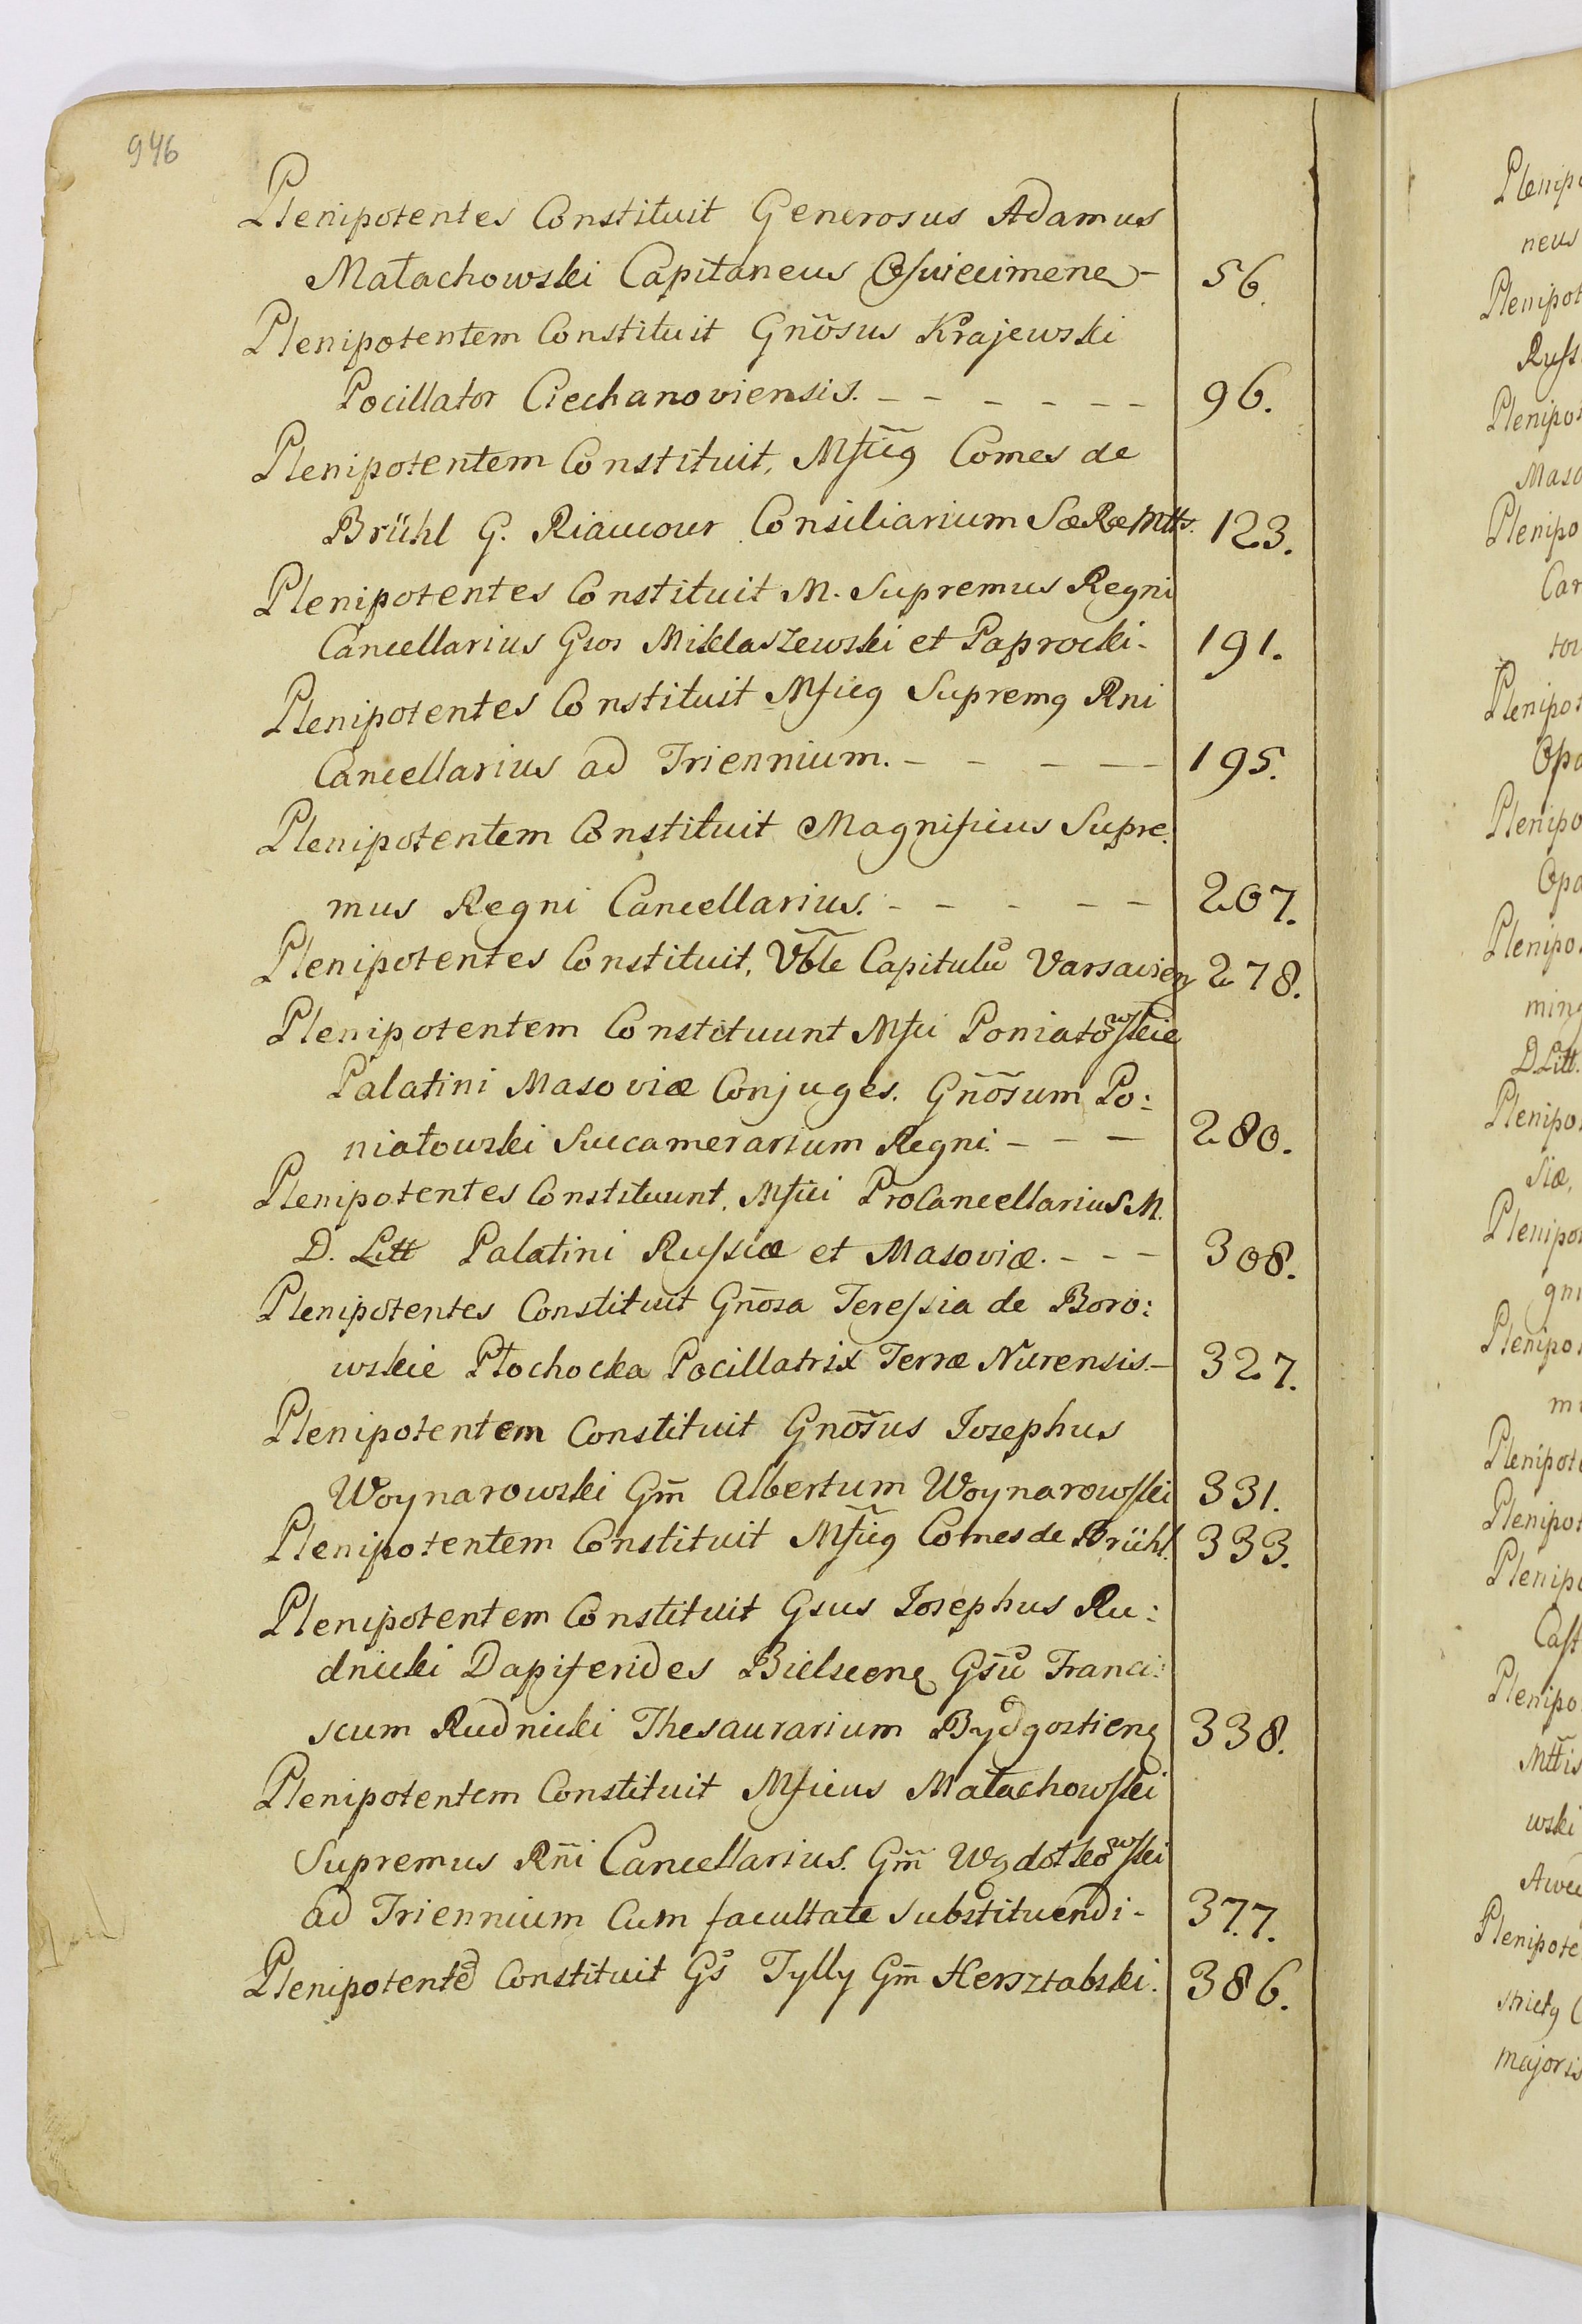 946
Plenipotentes Constituit Generosus Adamus
Małachowski Capitaneus Oswiecimens - 56.
Plenipotentem Constituit Gnõsus Krajewski
Pocillator Ciechanoviensis. - - - - - - 96.
Plenipotentem Constituit, Mficꝯ Comes de
Brühl G. Riaucour Consiliarium SæRæMtts. 123.
Plenipotentes Constituit M. Supremus Regni
Cancellarius Gsos Miklaszewski et Paprocki. 191.
Plenipotentes Constituit Mficꝯ Supremꝯ Rni
Cancellarius ad Triennium. - - - - 195.
Plenipotentem Constituit Magnificus Supre:
mus Regni Cancellarius. - - - - - 207.
Plenipotentes Constituit, Vble Capitulũ Varsavien 278.
Plenipotentem Constituunt Mfici Poniatowskie
Palatini Masoviæ Conjuges. Gnõsum Po:
niatowski Succamerarium Regni. - - - 280.
Plenipotentes Constituunt. Mfici ProCancellarius M.
D. Litt Palatini Russiæ et Masoviæ. - - - 308.
Plenipotentes Constituit Gnõsa Teressia de Boro:
wskie Płochocka Pocillatrix Terræ Nurensis. - 327.
Plenipotentem Constituit Gnõsus Iosephus
Woynarowski Gm̃ Albertum Woynarowski 331.
Plenipotentem Constituit Mficꝯ Comes de Brühl. 333.
Plenipotentem Constituit Gsus Iosephus Ru:
dnicki Dapiferides Bielscens Gsũ Franci:
scum Rudnicki Thesaurarium Bydgostiens 338.
Plenipotentem Constituit Mficus Małachowski
Supremus Rñi Cancellarius. Gm̃
ad Triennium Cum facultate substituendi - 377.
Plenipotentẽ Constituit Gs Tylly Gm̃ Hersztabski. 386.
Plenip
neus
Plenipot
Russ
Plenipot
Maso
Plenipo
Can
Plenipot
Opo
Plenipo
Opo
Plenipo
minꝯ
D Litt.
Plenipo
siæ,
Plenipo
gni
Plenipo
Plenipot
Plenipot
Plenip
Cast
Plenipo
Mttis
wski
Plenipote
majoris